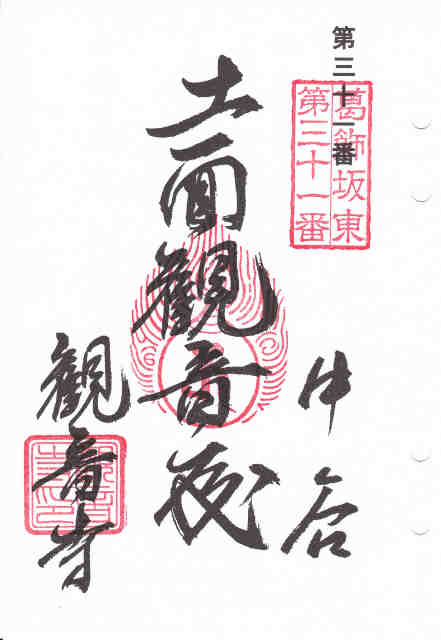 第三十一番
葛飾坂東
第三十一番
中
十一面觀音
觀音寺